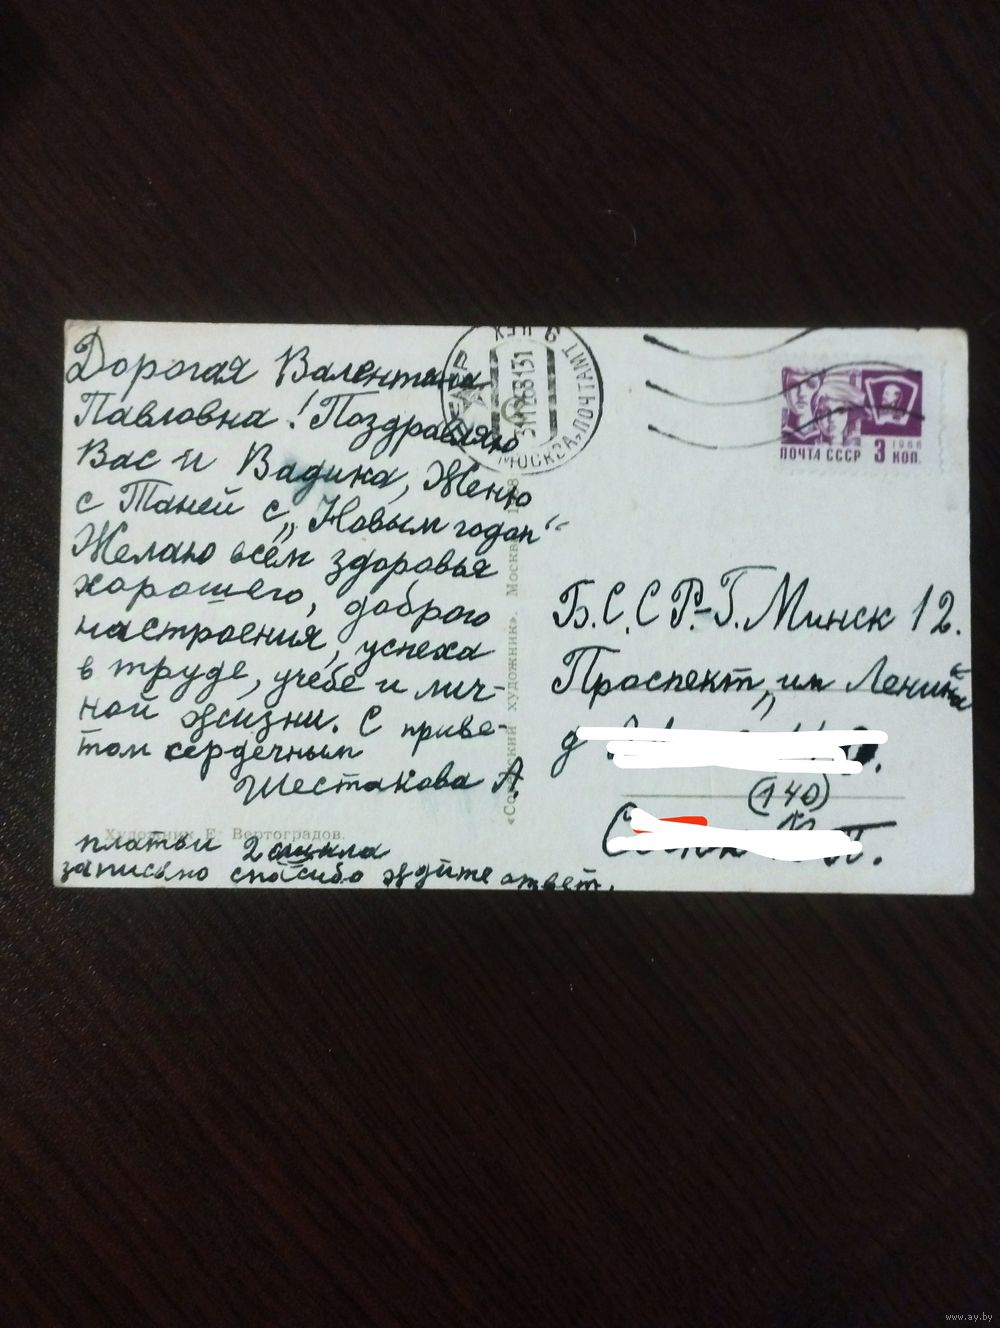 Дорогая Валентина
Павловна! Поздравляю
Вас и Вадика, Женю
с Таней с „Новым годом“
Желаю всем здоровья
хорошего, доброго
настроения, успеха
в труде, учёбе и лич-
ной жизни. С приве-
том сердечным
Шестакова А.
Художник Е. Вертоградов.
платьи 2
записано спасибо ждите ответ.
«Советский художник». Москва
МОСКВА-ПОЧТАМТ
31126813
ПОЧТА СССР 3 КОП.
1966
Б.С.С.Р-Г. Минск 12.
Проспект им Ленина
д
(140)
www.ay.by